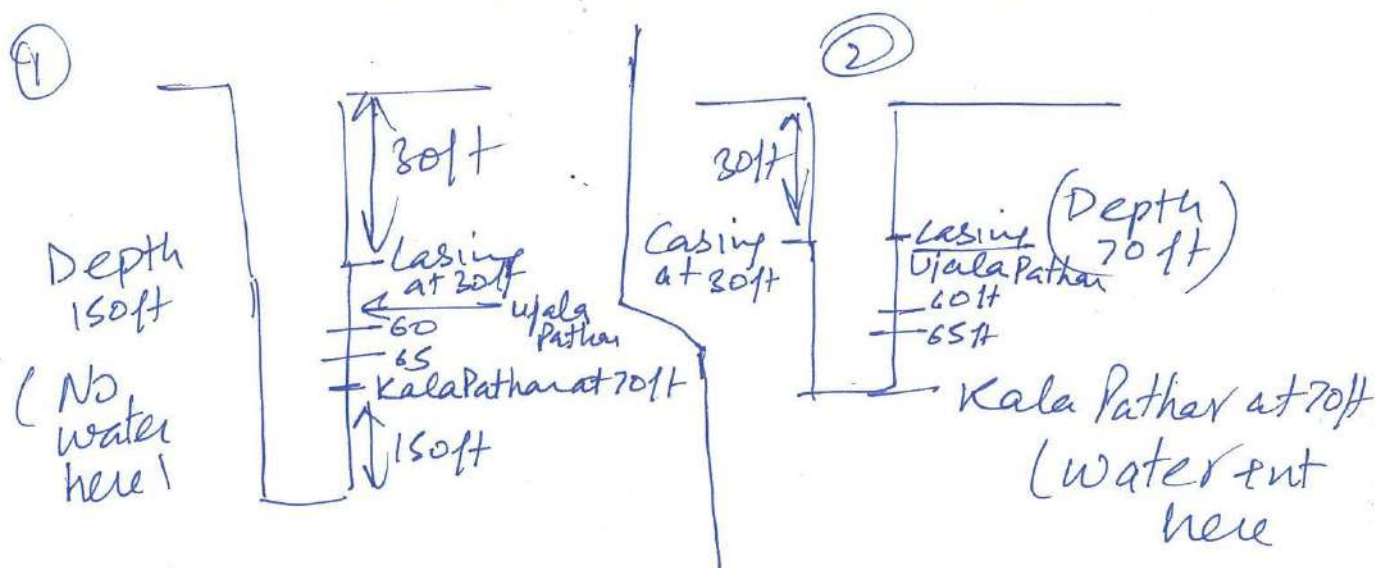 ①
30ft
Depth
150ft
(No
water
here)
Casing
at 30ft
Ujala
Pathar
60
65
Kala Pathar at 70ft
150ft
②
30ft
Casing
at 30ft
Casing
Ujala Pathar
(Depth
70ft)
60ft
65ft
Kala Pathar at 70ft
(water
here